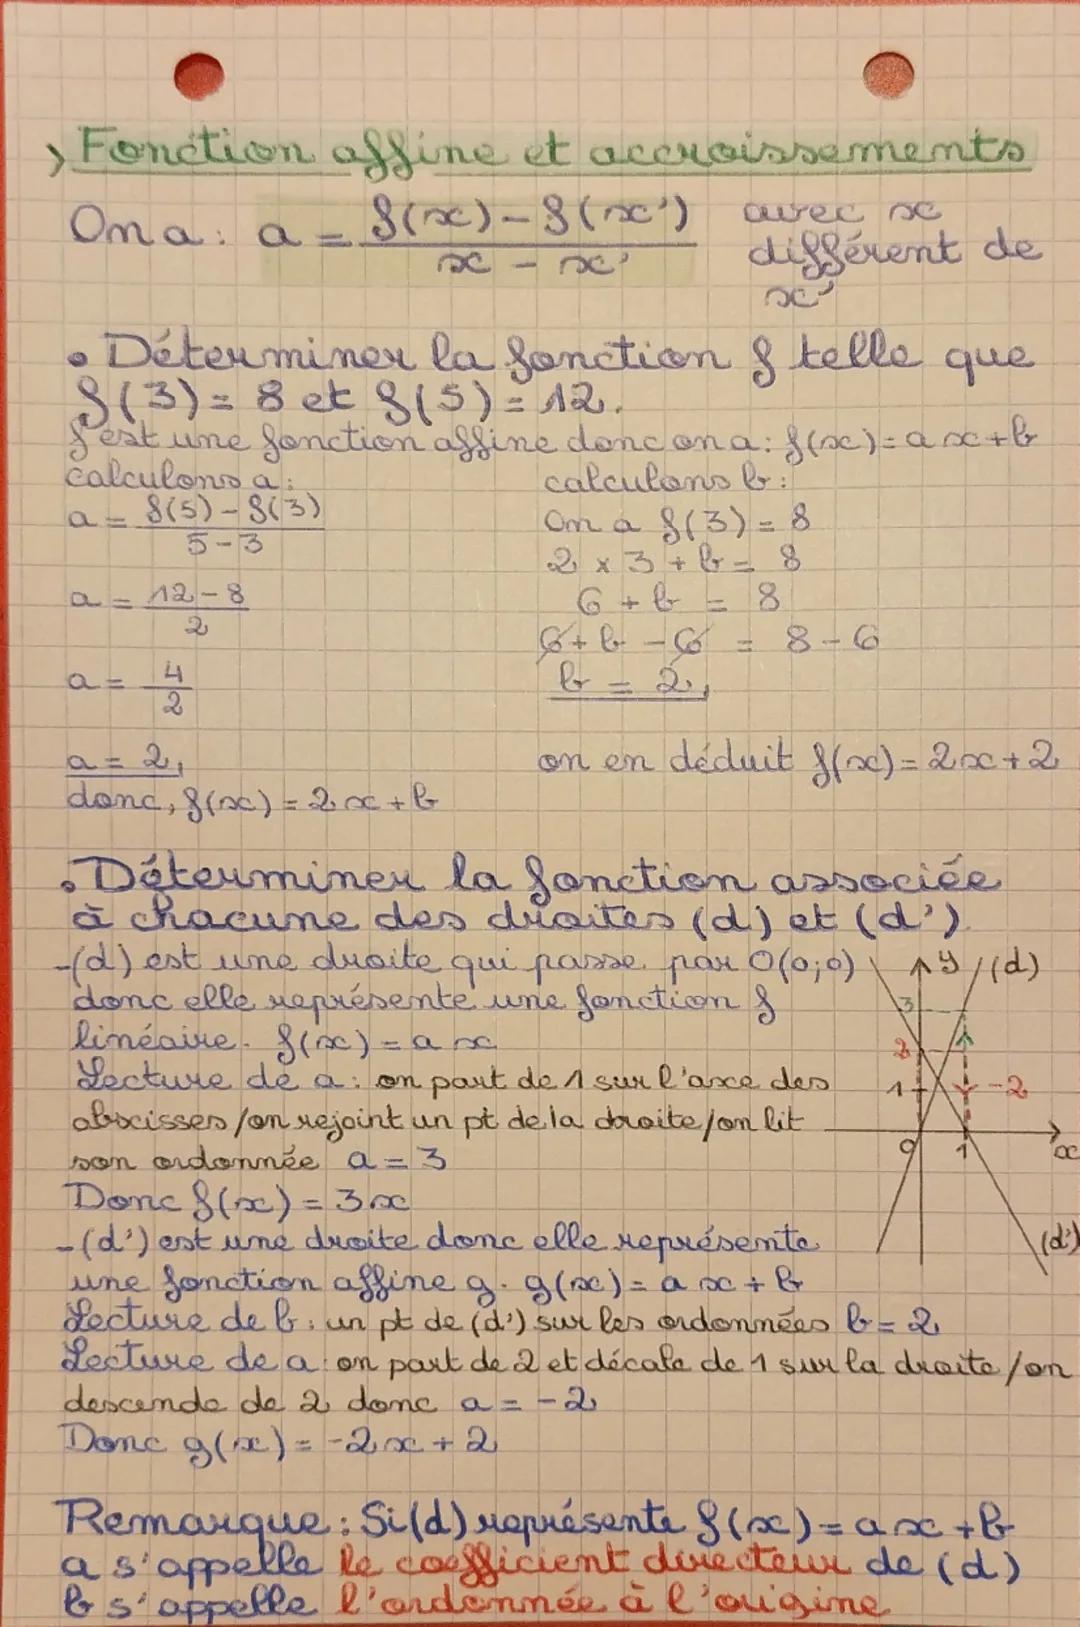 > Fonction affine et accroissements
On a : a = f(x) - f(x') / x - x' avec x
différent de
x'
• Déterminer la fonction f telle que
f(3) = 8 et f(5) = 12.
f est une fonction affine donc on a : f(x) = ax + b
calculons a :
a = f(5) - f(3) / 5 - 3
a = 12 - 8 / 2
a = 4 / 2
a = 2,
donc, f(x) = 2x + b
calculons b :
On a f(3) = 8
2 x 3 + b = 8
6 + b = 8
6 + b - 6 = 8 - 6
b = 2,
on en déduit f(x) = 2x + 2
• Déterminer la fonction associée
à chacune des droites (d) et (d').
-(d) est une droite qui passe par O(0;0)
donc elle représente une fonction f
linéaire. f(x) = ax
Lecture de a : on part de 1 sur l'axe des
abscisses / on rejoint un pt de la droite / on lit
son ordonnée a = 3
Donc f(x) = 3x
-(d') est une droite donc elle représente
une fonction affine g. g(x) = ax + b
Lecture de b : un pt de (d') sur les ordonnées b = 2
Lecture de a : on part de 2 et décale de 1 sur la droite / on
descende de 2 donc a = -2
Donc g(x) = -2x + 2
y (d)
3
2
1 -2
0 1 x
(d')
Remarque : Si (d) représente f(x) = ax + b
a s'appelle le coefficient directeur de (d)
b s'appelle l'ordonnée à l'origine